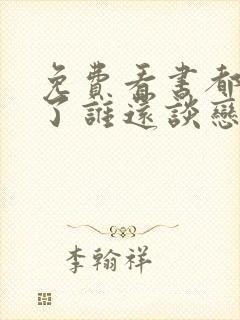 免費看書都
了誰還談戀
李翰祥